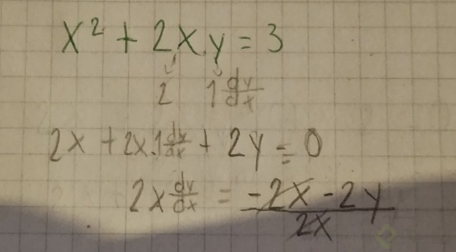 x² + 2x.y = 3
2 1 dy/dx
2x + 2x.1 dy/dx + 2y = 0
2x dy/dx = (-2x - 2y)/2x